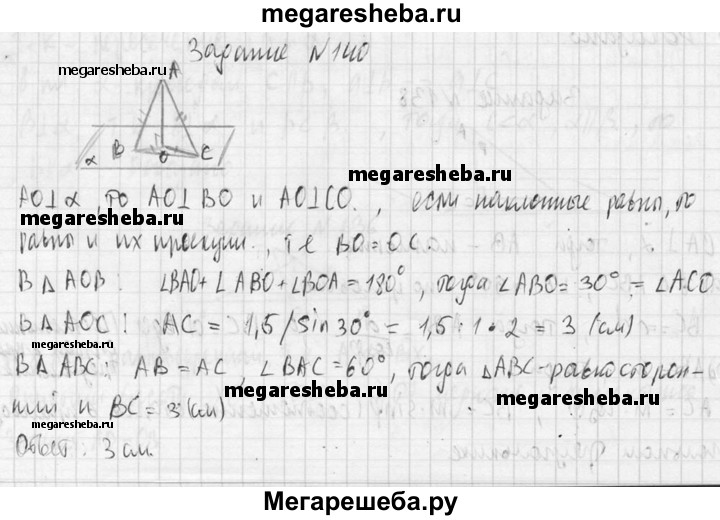 megaresheba.ru
Задание N140
megaresheba.ru
A
B
O
C
α
megaresheba.ru
AO⊥α, то AO⊥BO и AO⊥CO., если наклонные равны, то
megaresheba.ru
равны и их проекции., т.е BO=OC.
В △ AOB: ∠BAO+∠ABO+∠BOA=180°, тогда ∠ABO=30°=∠ACO
В △ AOC: AC = 1,5/sin30° = 1,5:1·2 = 3 (см)
В △ ABC: AB = AC, ∠BAC=60°, тогда △ABC-равносторон-
megaresheba.ru
megaresheba.ru
ний и BC = 3 (см)
Ответ: 3 см.
megaresheba.ru
Мегарешеба.ру